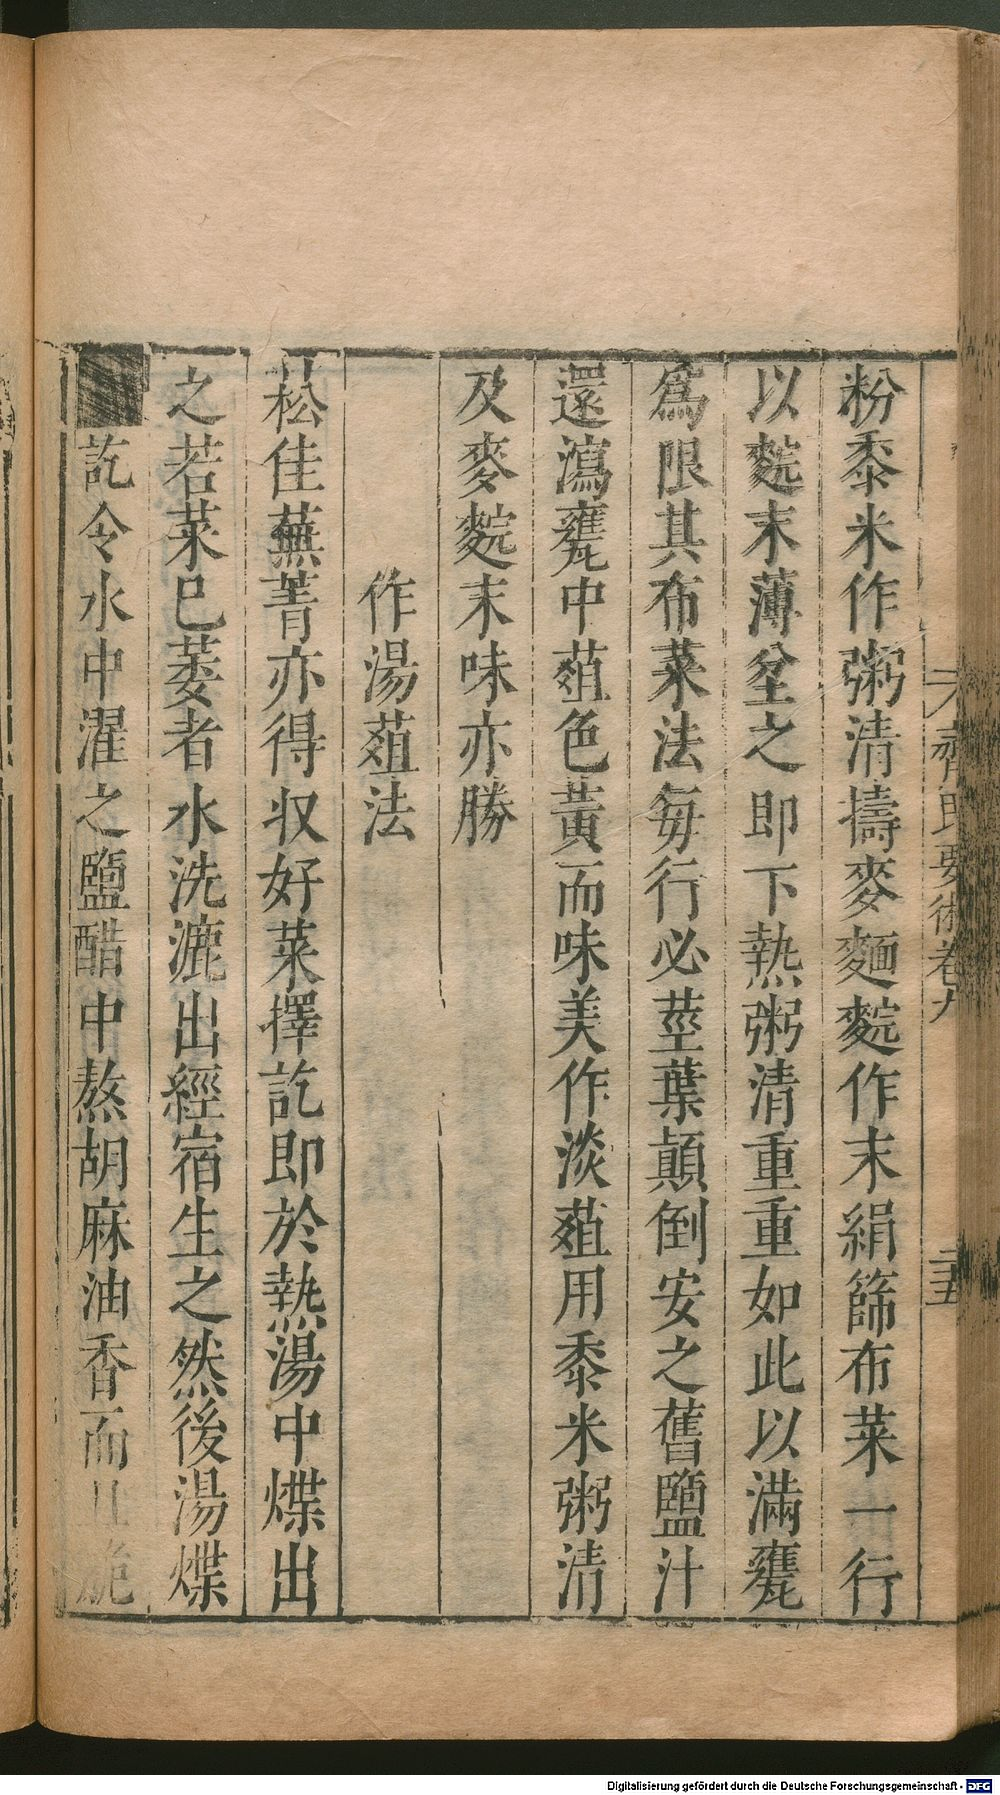 粉黍米作粥清擣麥麵䴷作末絹篩布菜一行
以䴷末薄坌之即下熱粥清重重如此以滿甕
為限其布菜法每行必莖葉顛倒安之舊鹽汁
還瀉甕中葅色黃而味美作淡葅用黍米粥清
及麥䴷末味亦勝
作湯葅法
菘佳蕪菁亦得収好菜擇訖即於熱湯中煠出
之若菜已萎者水洗漉出經宿生之然後湯煠
訖令水中濯之鹽醋中熬胡麻油香而且脆
齊民要術卷九
二十五
Digitalisierung gefördert durch die Deutsche Forschungsgemeinschaft - DFG